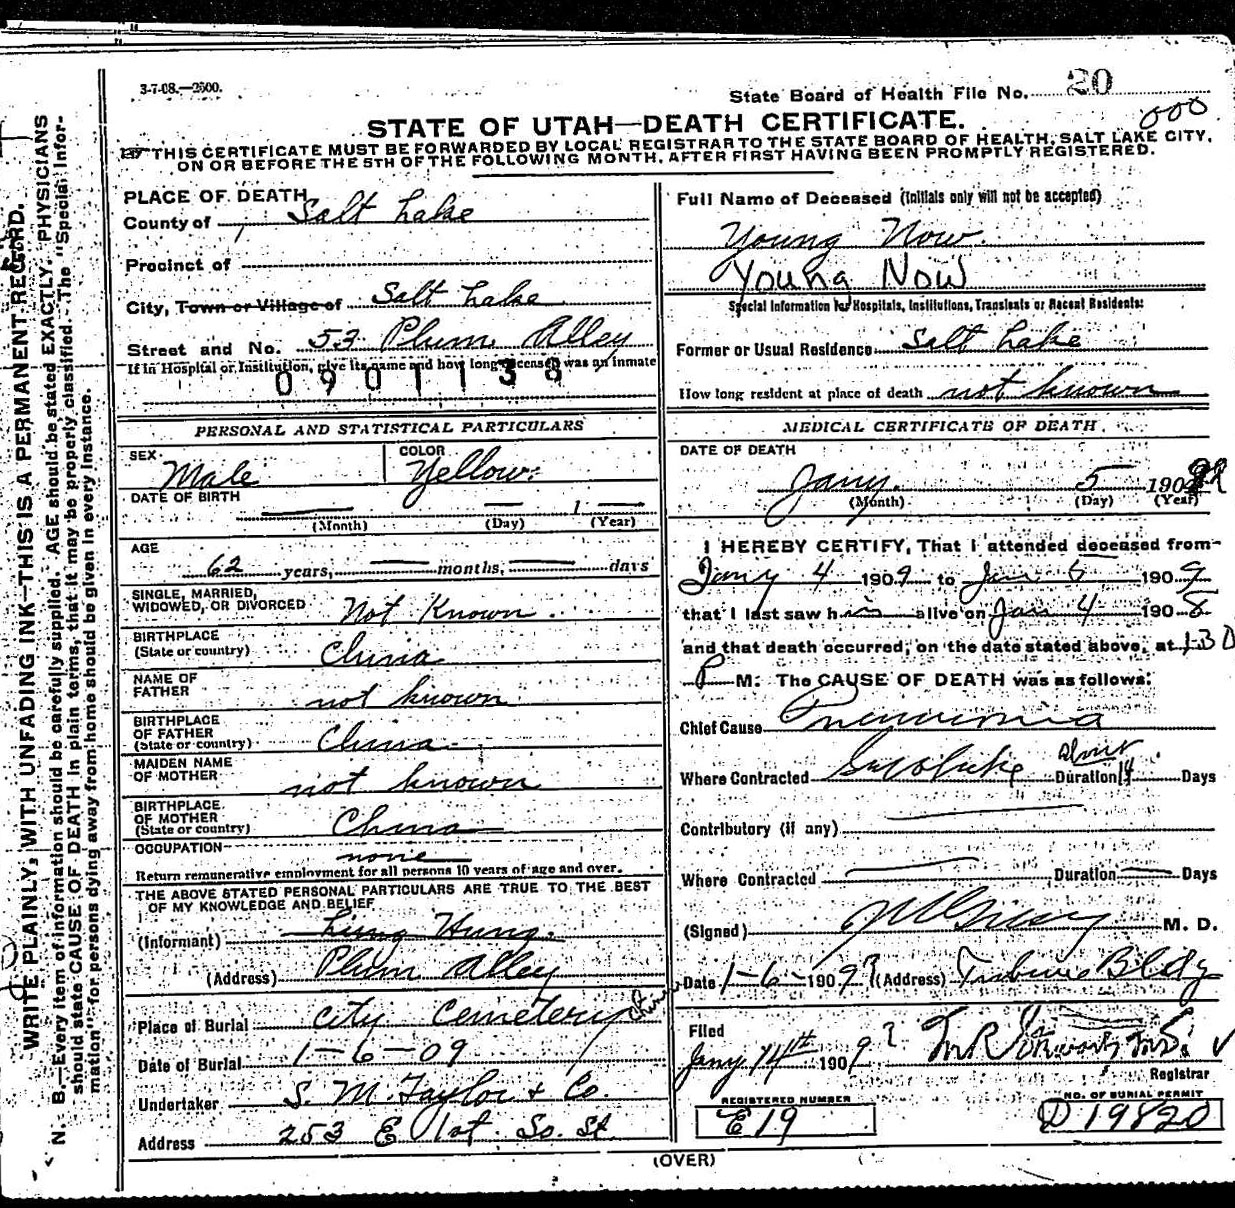 3-7-08.—2500.
State Board of Health File No. 20
000
STATE OF UTAH—DEATH CERTIFICATE.
THIS CERTIFICATE MUST BE FORWARDED BY LOCAL REGISTRAR TO THE STATE BOARD OF HEALTH, SALT LAKE CITY,
ON OR BEFORE THE 5TH OF THE FOLLOWING MONTH, AFTER FIRST HAVING BEEN PROMPTLY REGISTERED.
WRITE PLAINLY, WITH UNFADING INK—THIS IS A PERMANENT RECORD.
N. B.—Every item of information should be carefully supplied. AGE should be stated EXACTLY. PHYSICIANS
should state CAUSE OF DEATH in plain terms, that it may be properly classified. The "Special Infor-
mation" for persons dying away from home should be given in every instance.
PLACE OF DEATH
County of Salt Lake
Precinct of
City, Town or Village of Salt Lake
Street and No. 53 Plum Alley
If in Hospital or Institution, give its name and how long deceased was an inmate
0901138
PERSONAL AND STATISTICAL PARTICULARS
SEX Male COLOR Yellow.
DATE OF BIRTH — — 1 —
(Month) (Day) (Year)
AGE 62 years, — months, — days
SINGLE, MARRIED,
WIDOWED, OR DIVORCED Not Known.
BIRTHPLACE
(State or country) China
NAME OF
FATHER not known
BIRTHPLACE
OF FATHER
(State or country) China
MAIDEN NAME
OF MOTHER not known
BIRTHPLACE
OF MOTHER
(State or country) China
OCCUPATION none
Return remunerative employment for all persons 10 years of age and over.
THE ABOVE STATED PERSONAL PARTICULARS ARE TRUE TO THE BEST
OF MY KNOWLEDGE AND BELIEF
(Informant) Hung.
(Address) Plum Alley
Place of Burial City Cemetery
Date of Burial 1-6-09
Undertaker S. M. Taylor & Co.
Address 253 E 1st. So. St.
Full Name of Deceased (Initials only will not be accepted)
Young Now.
Young Now
Special Information for Hospitals, Institutions, Transients or Recent Residents:
Former or Usual Residence Salt Lake
How long resident at place of death not known
MEDICAL CERTIFICATE OF DEATH
DATE OF DEATH
Jany. 5 190
(Month) (Day) (Year)
I HEREBY CERTIFY, That I attended deceased from
Jany 4 1909 to Jan 5 1909
that I last saw him alive on Jan 4 1908
and that death occurred, on the date stated above, at 130
P M. The CAUSE OF DEATH was as follows:
Chief Cause Pneumonia
Where Contracted Duration 14 Days
Contributory (if any)
Where Contracted — Duration — Days
(Signed) M. D.
Date 1-6-1909? (Address) Tribune Bldg
Filed
Jany 14th 1909?
Registrar
REGISTERED NUMBER
E19
NO. OF BURIAL PERMIT
D 19820
(OVER)